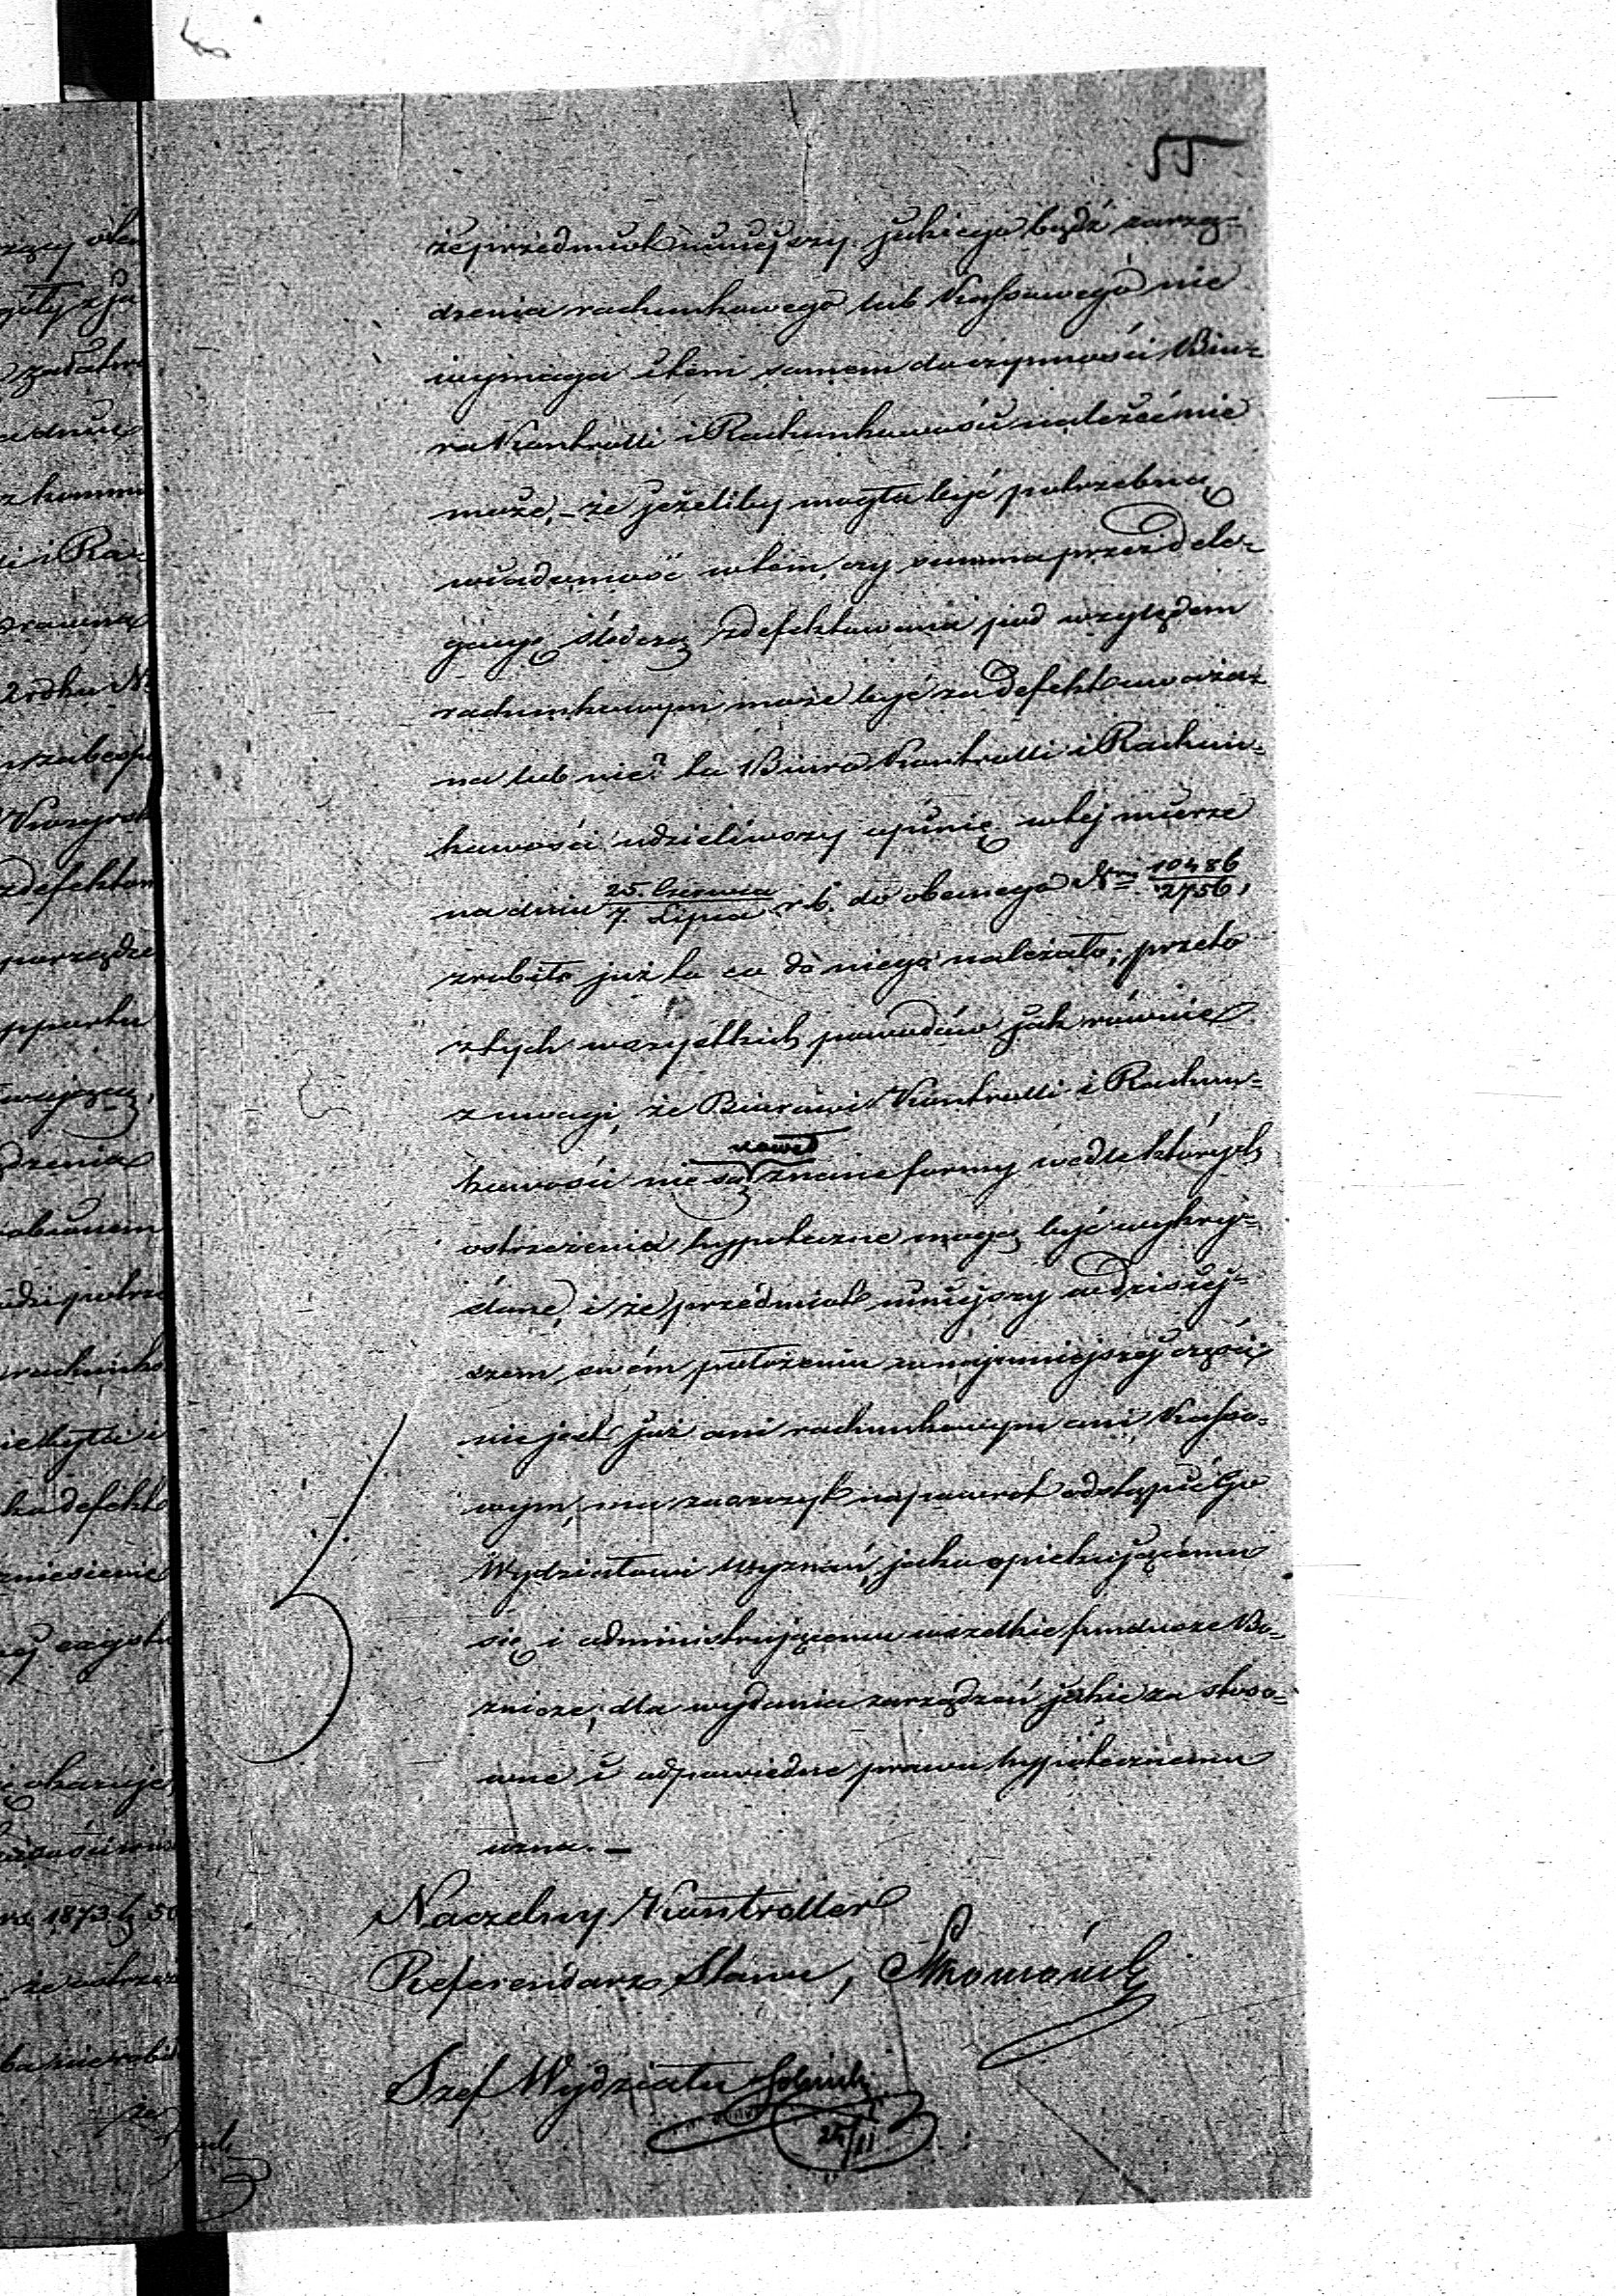 55
że przedmiot niniejszy jakiego bądź zarzą=
dzenia rachunkowego lub Kassowego nie
wymaga i tem samem do czynności Biu=
ra Kontrolli i Rachunkowości należeć nie
może, – że jeżeliby mogła być potrzebną
wiadomość w tem, czy summa przez dele=
gacyę śledczą zdefektowana pod względem
rachunkowym może być za defekt uważa=
na lub nie? to Biuro Kontrolli i Rachun=
kowości udzieliwszy opinię w tej mierze
na dniu 25. Czerwca / 7. Lipca r. b. do obecnego Nru 10486 / 2756,
zrobiło już to co do niego należało; przeto
z tych wszystkich powodów jak równie
z uwagi, że Biurowi Kontrolli i Rachun=
nawet
kowości nie są znane formy wedle których
ostrzeżenia hypoteczne mogą być wykry=
ślane, i że przedmiot niniejszy w dzisiej=
szem swém położeniu w najmniejszej części
nie jest już ani rachunkowym ani Kasso=
wym, ma zaszczyt napowrot odstąpić go
Wydziałowi Wyznań, jako opiekującemu
się i administrującemu wszelkie fundusze Bó=
żnicze, dla wydania zarządzeń jakie za stoso=
wne i odpowiednie prawu hypotecznemu
uzna. –
Naczelny Kontroller
Referendarz Stanu,
Szef Wydziału
24/11
zący
góły z
z kommu
i i Ra=
2 roku No
zdefekton
porządze
dzenia
rachunko
nie była i
zniesienie
okazuje,
1873
że ostrzeż